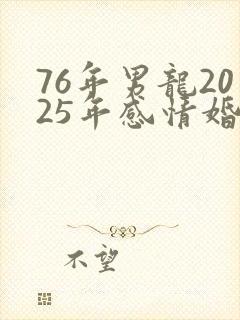 76年男龍20
25年感情婚
不望